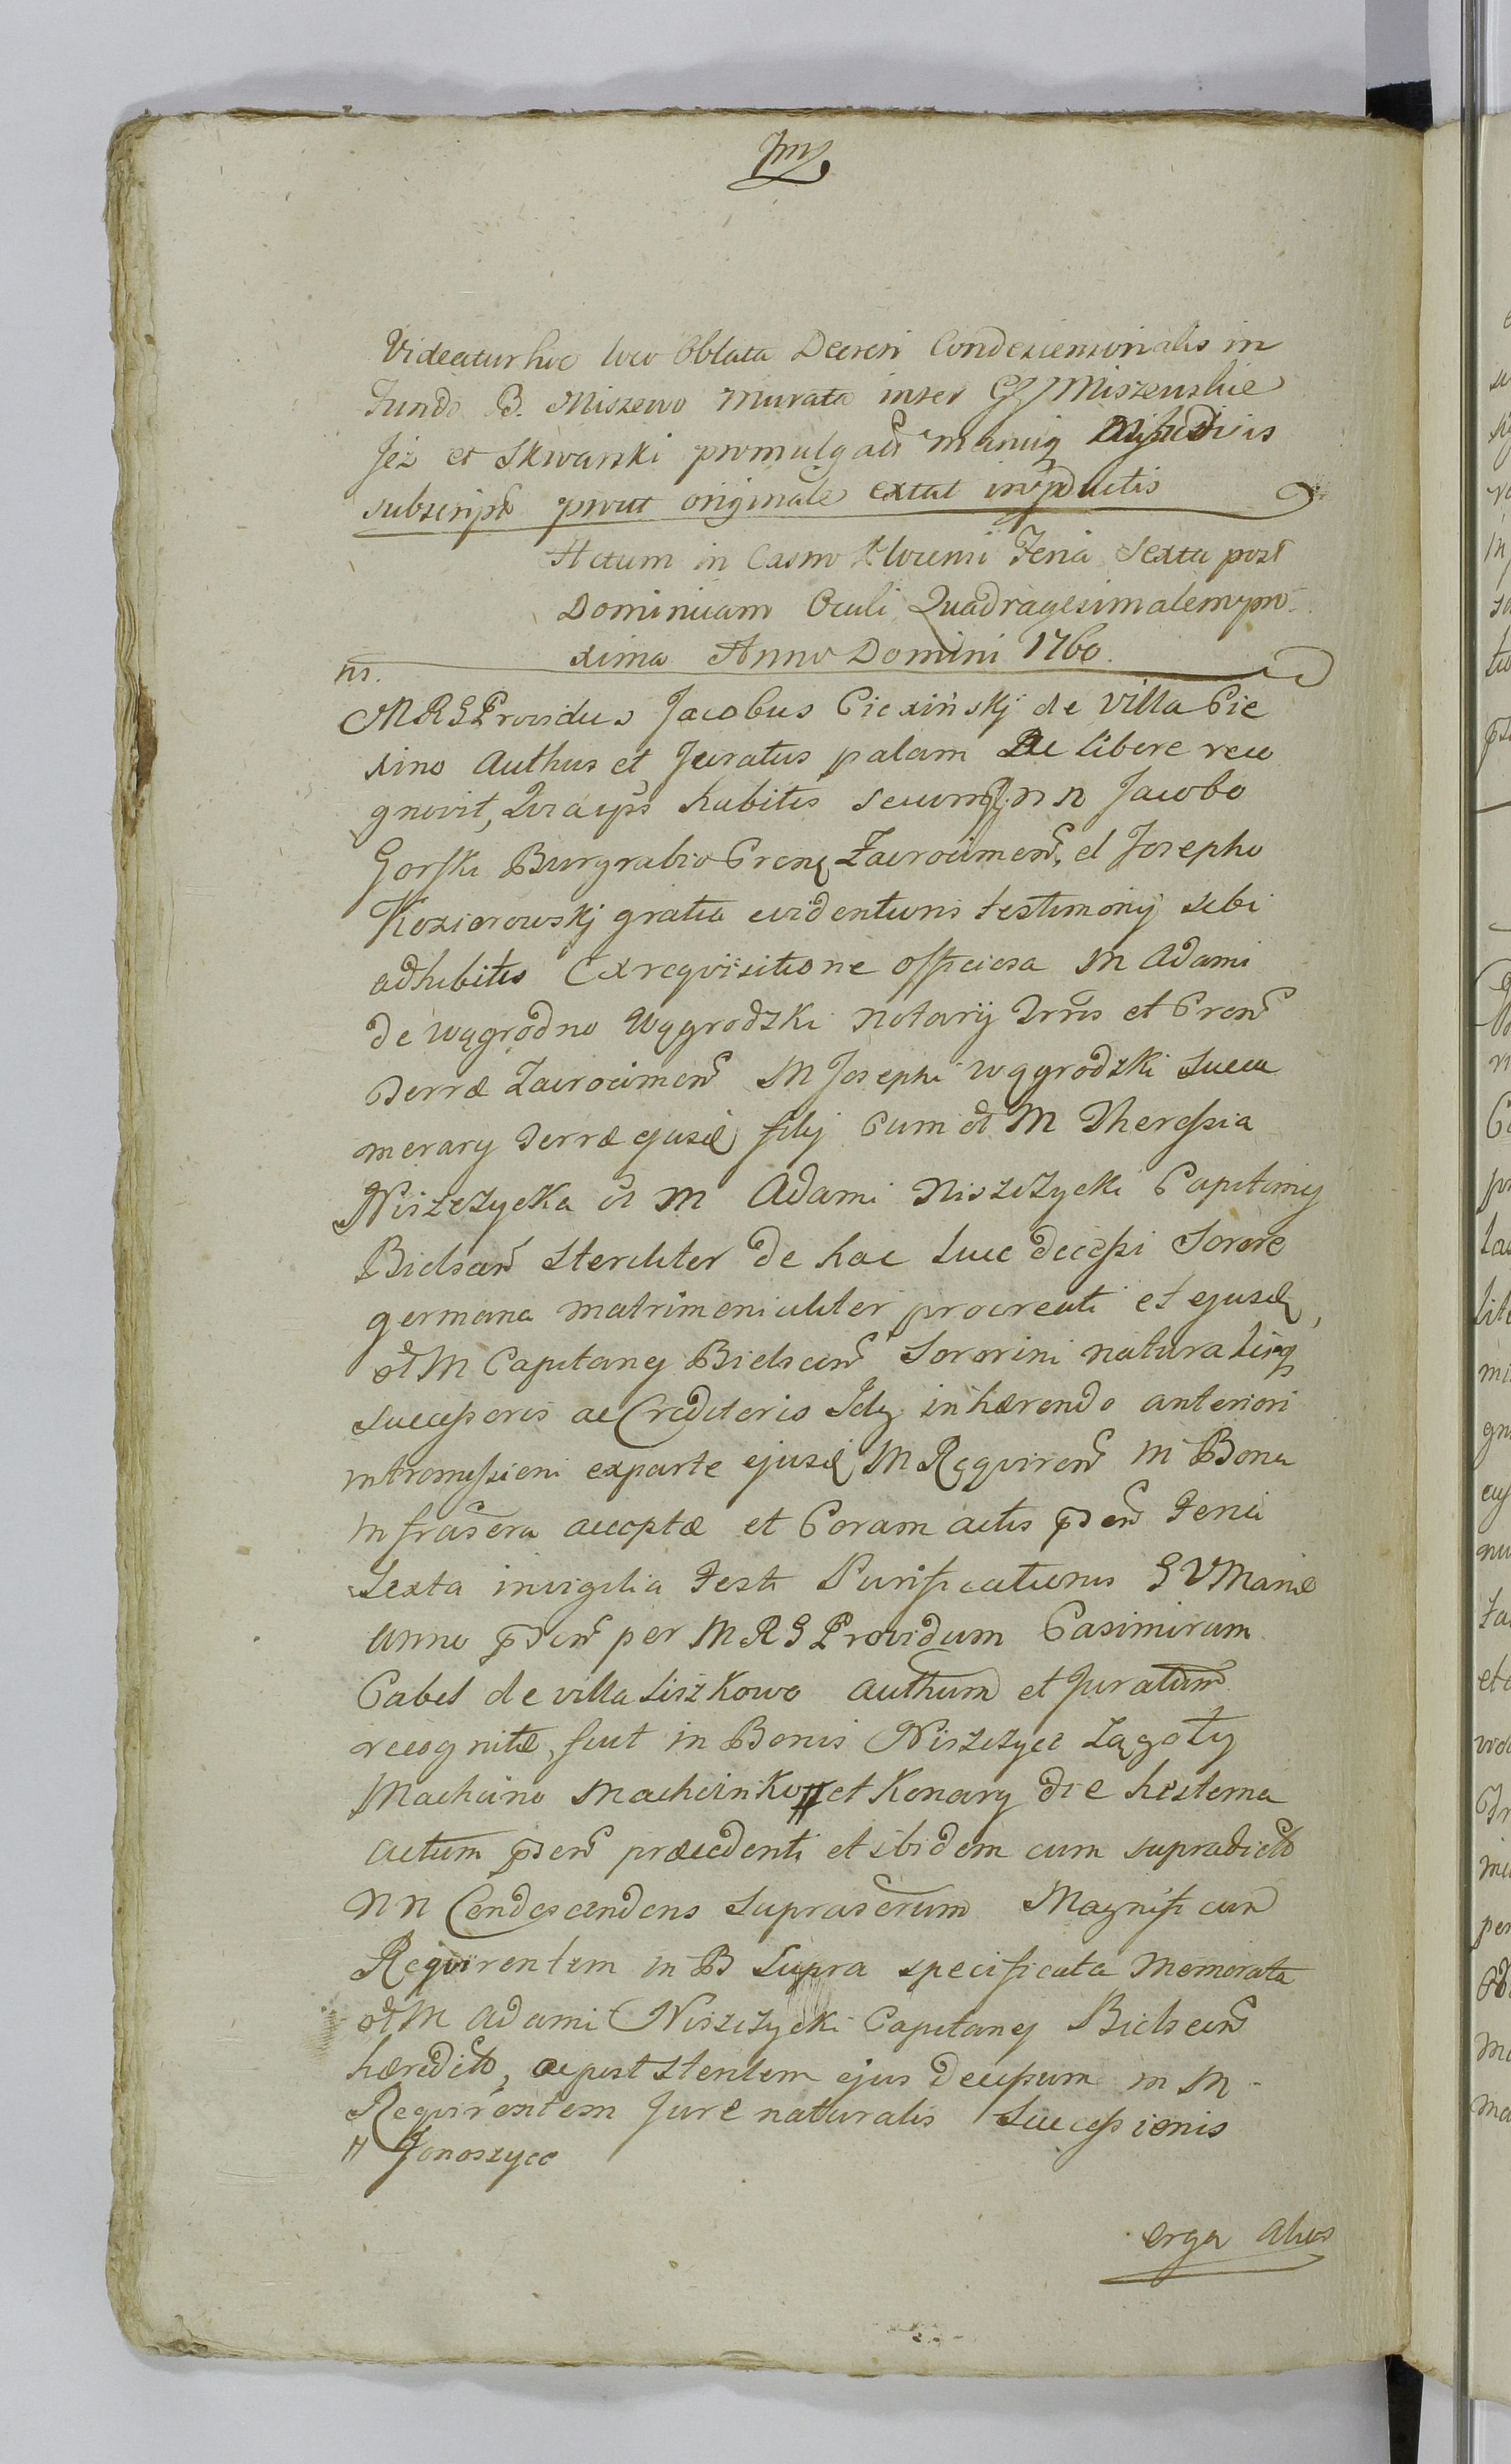 Videatur hoc loco Oblata Decreti Condescensionalis in
Fundo B. Miszewo Murata inter GG Miszewskie
Jeż et Skwarski promulgati manuq
subscript prout originale extat inductis
Actum in Castro Plocensi Feria Sexta post
Dominicam Oculi Quadragesimalem pro
xima Anno Domini 1760.
MRS Providus Jacobus Ciexińskj de Villa Cie
xino Authus et Juratus palam ac libere reco
gnovit, habitis secum N N Jacobo
Gorski Burgrabio Cren Zacrocimen, et Josepho
Kozierowskj gratia evidentioris testimonij sibi
adhibitis Ex reqvisitione officiosa M Adami
de wągrodno Wągrodzki Notarij Trris et Cren
Terræ Zacrocimen M Josephi wągrodzki Succa
merarij Terræ ejusd filij Cum ol M Theressia
Niszczycka ol M Adami Niszczycki Capitanej
Bielscen Steriliter de hac luce decessi Sorore
germana matrimonialiter procreati et ejusd,
ol M Capitanej Bielscen Sororini naturalisq
Successoris ac Creditoris Idq inhærendo anteriori
intromissioni exparte ejusd M Reqviren in Bona
infrascra acceptæ et Coram actis pden Feria
Sexta invigilia Festi Purificationis S V Mariæ
anno pden per MRS Providum Casimirum
Cabel de villa Liszkowo authum et Juratum
recognitæ, fuit in Bonis Niszczyce Zągoty
Machcino Machcinko # et Konary die hesterna
actum pden præcedenti et ibidem cum supradictis
N N Condescendens suprascrum Magnificum
Reqvirentem in B Supra specificata Memorata
ol M Adami Niszczycki Capitanej Bielscen
hæredit, ac post sterilem ejus decessum in M
Reqvirentem Jure naturalis Successionis
# Jonoszyce
erga alios